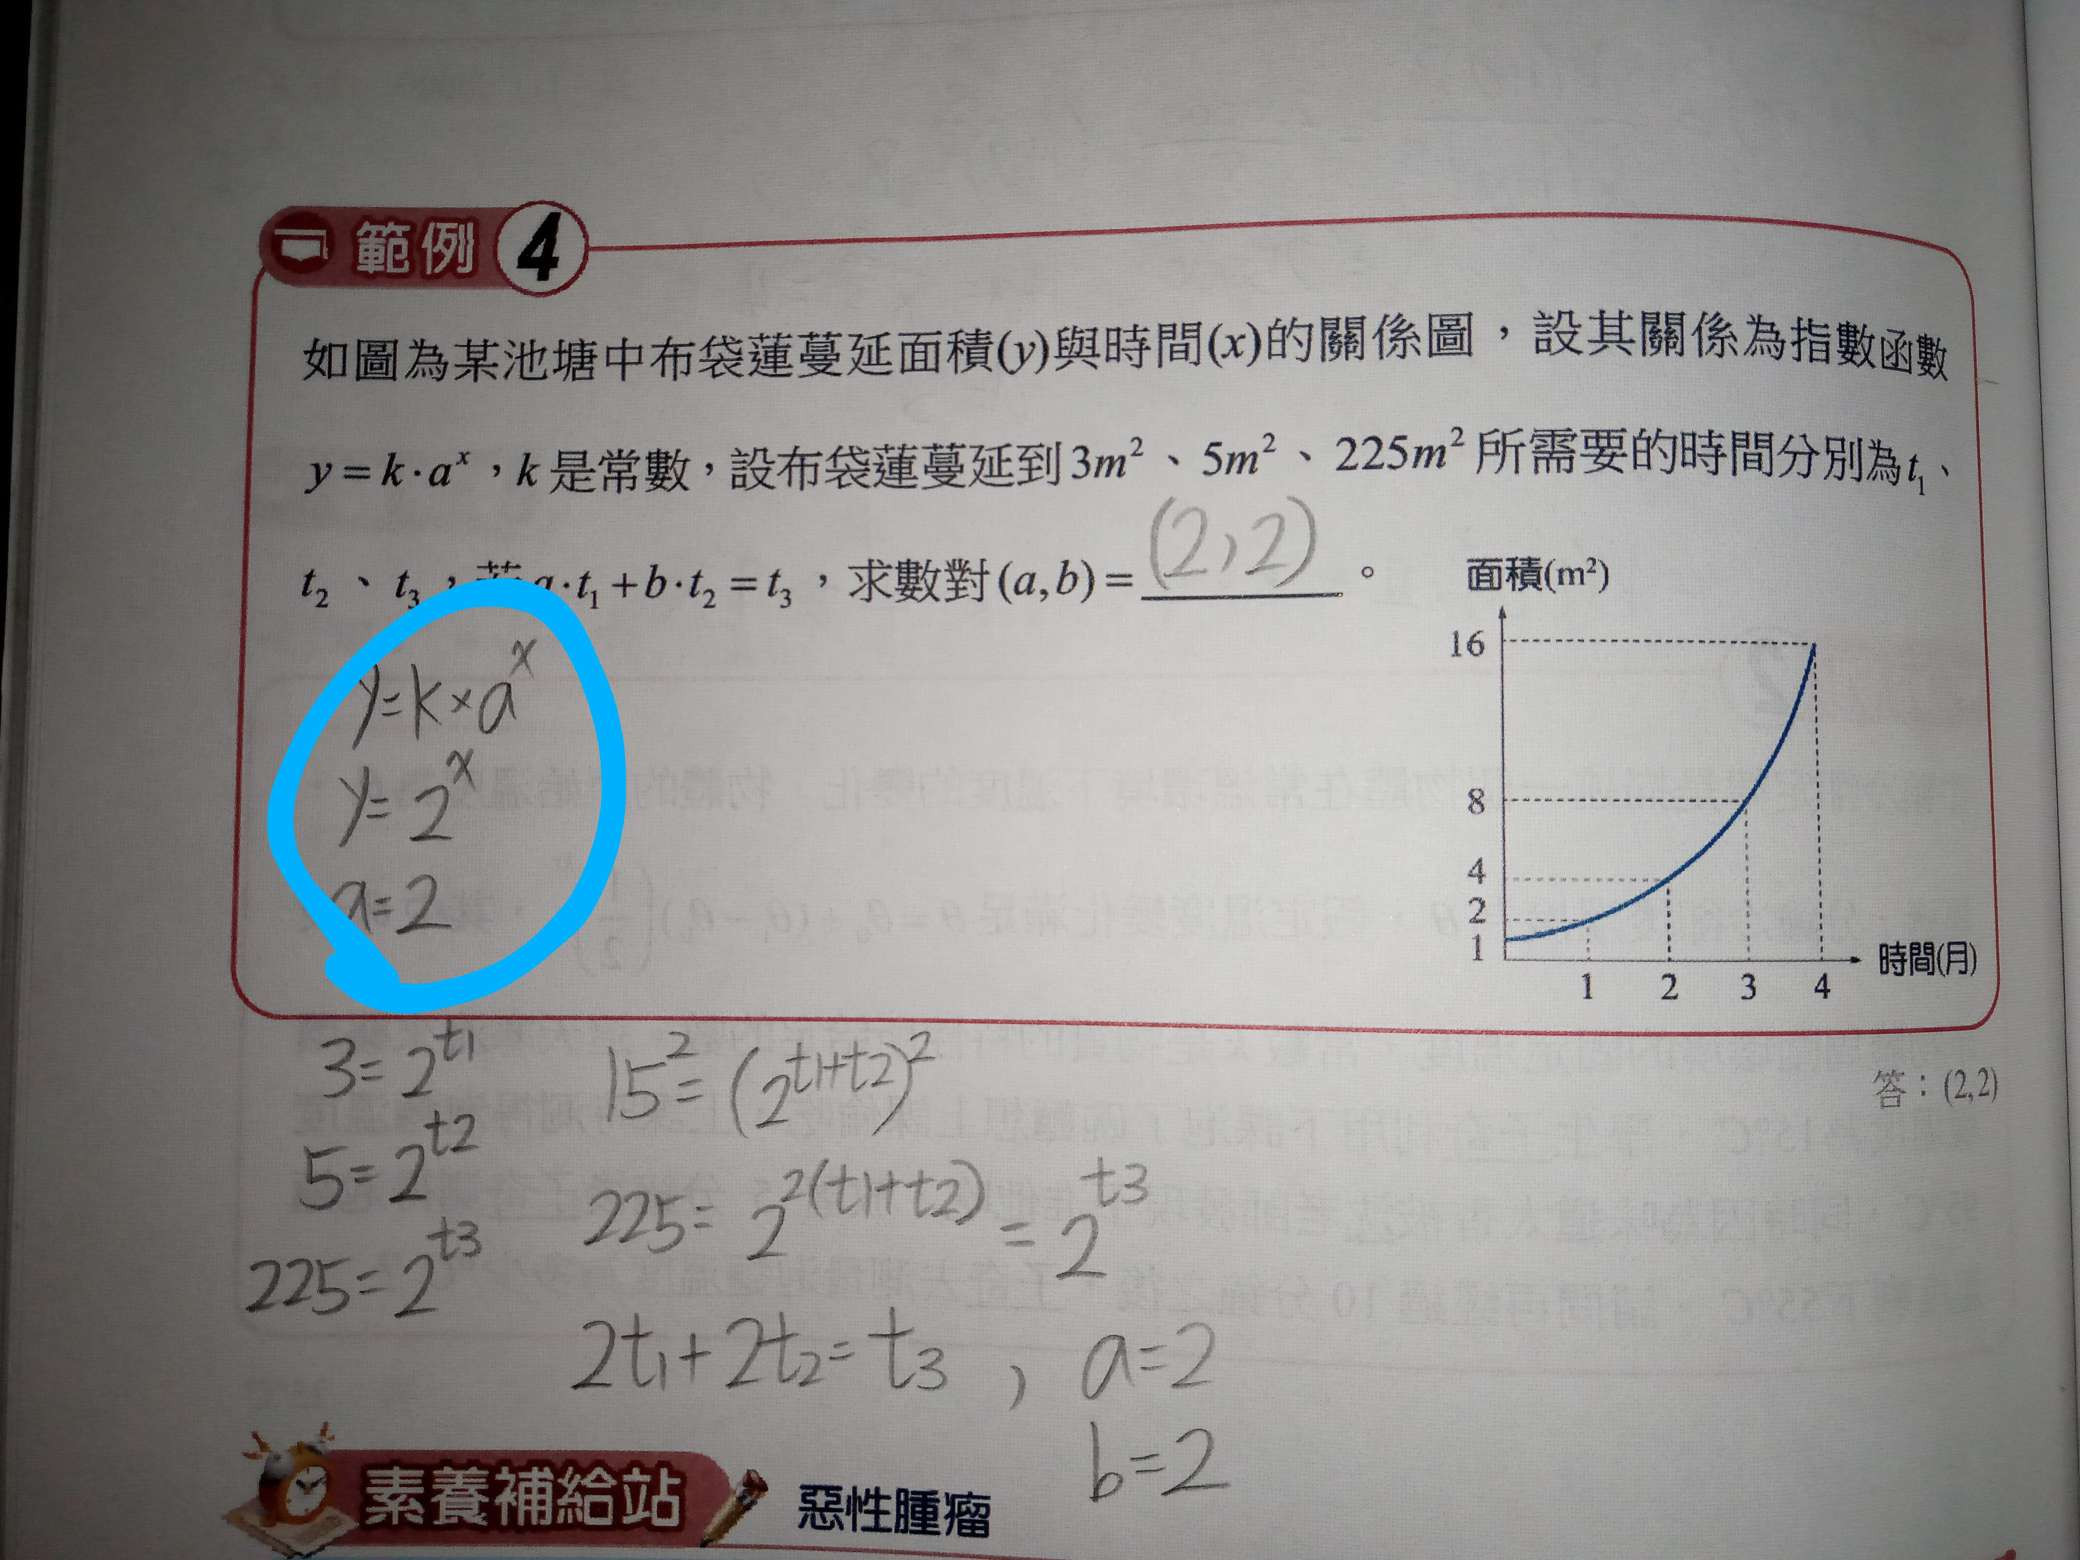 範例 4
如圖為某池塘中布袋蓮蔓延面積(y)與時間(x)的關係圖，設其關係為指數函數
y = k·aˣ，k 是常數，設布袋蓮蔓延到 3m²、5m²、225m² 所需要的時間分別為 t₁、
t₂、t₃，若 a·t₁+b·t₂=t₃，求數對(a,b)= (2,2) 。
面積(m²)
16
8
4
2
1
1 2 3 4
時間(月)
y=k×aˣ
y=2ˣ
a=2
答：(2,2)
3=2^t1
5=2^t2
225=2^t3
15²=(2^t1+t2)²
225=2^2(t1+t2)=2^t3
2t₁+2t₂=t₃，a=2
b=2
素養補給站 惡性腫瘤